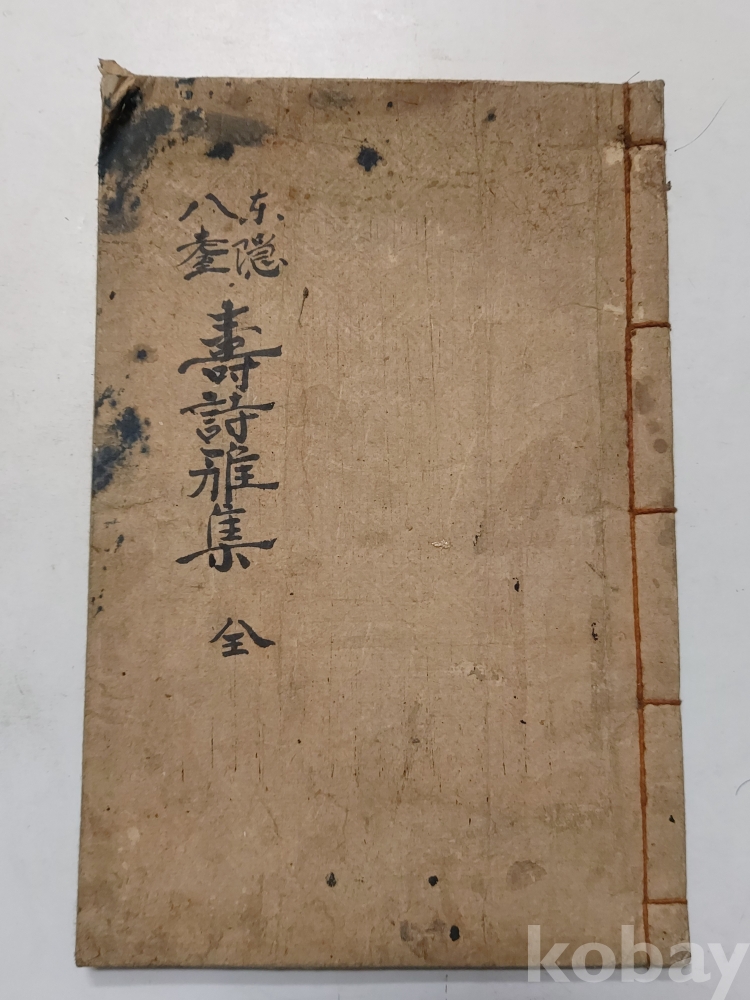 东隐
八耋
壽詩雅集
全
kobay